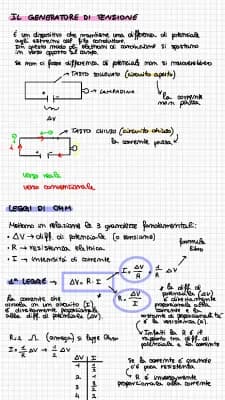 IL GENERATORE DI TENSIONE
È un dispositivo che mantiene una differenza di potenziale
agli estremi del filo conduttore.
In questo modo gli elettroni di conduzione si spostano
in verso opposto al campo.
Se non ci fosse differenza di potenziale non si muoverebbero
TASTO SOLLEVATO (circuito aperto)
LAMPADINA
la corrente
non passa
ΔV
TASTO CHIUSO (circuito chiuso)
la corrente passa
verso reale
verso convenzionale
LEGGI DI OHM
Mettono in relazione le 3 grandezze fondamentali:
• ΔV → diff. di potenziale (o tensione)
• R → resistenza elettrica
• I → intensità di corrente
formula
1ª LEGGE → ΔV = R · I
I = ΔV/R = 1/R ΔV
R = ΔV/I
La corrente che
circola in un circuito (I)
è direttamente proporzionale
alla diff. di potenziale (ΔV).
la diff. di
potenziale (ΔV)
è direttamente
proporzionale alla
corrente e la
è la resistenza (R).
Infatti la R è il
rapporto tra diff. di
potenziale e la corrente
ΔV I
1
2
3
4 2
Se la corrente è grande
c'è poca resistenza
R è inversamente
proporzionale alla corrente